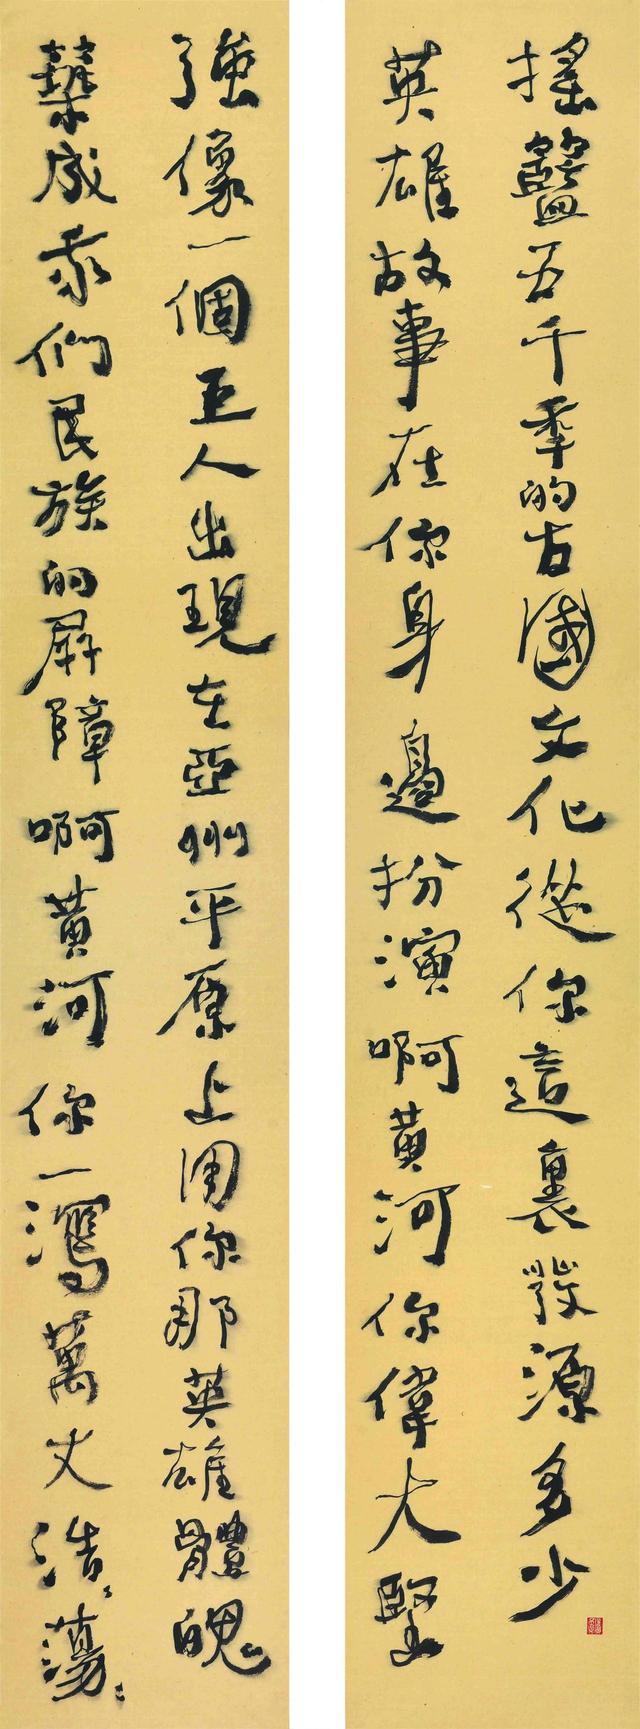 搖籃五千年的古國文化從你這裏發源多少
英雄故事在你身邊扮演啊黃河你偉大堅
強像一個巨人出現在亞洲平原上用你那英雄體魄
築成我們民族的屏障啊黃河你一瀉萬丈浩〻蕩〻